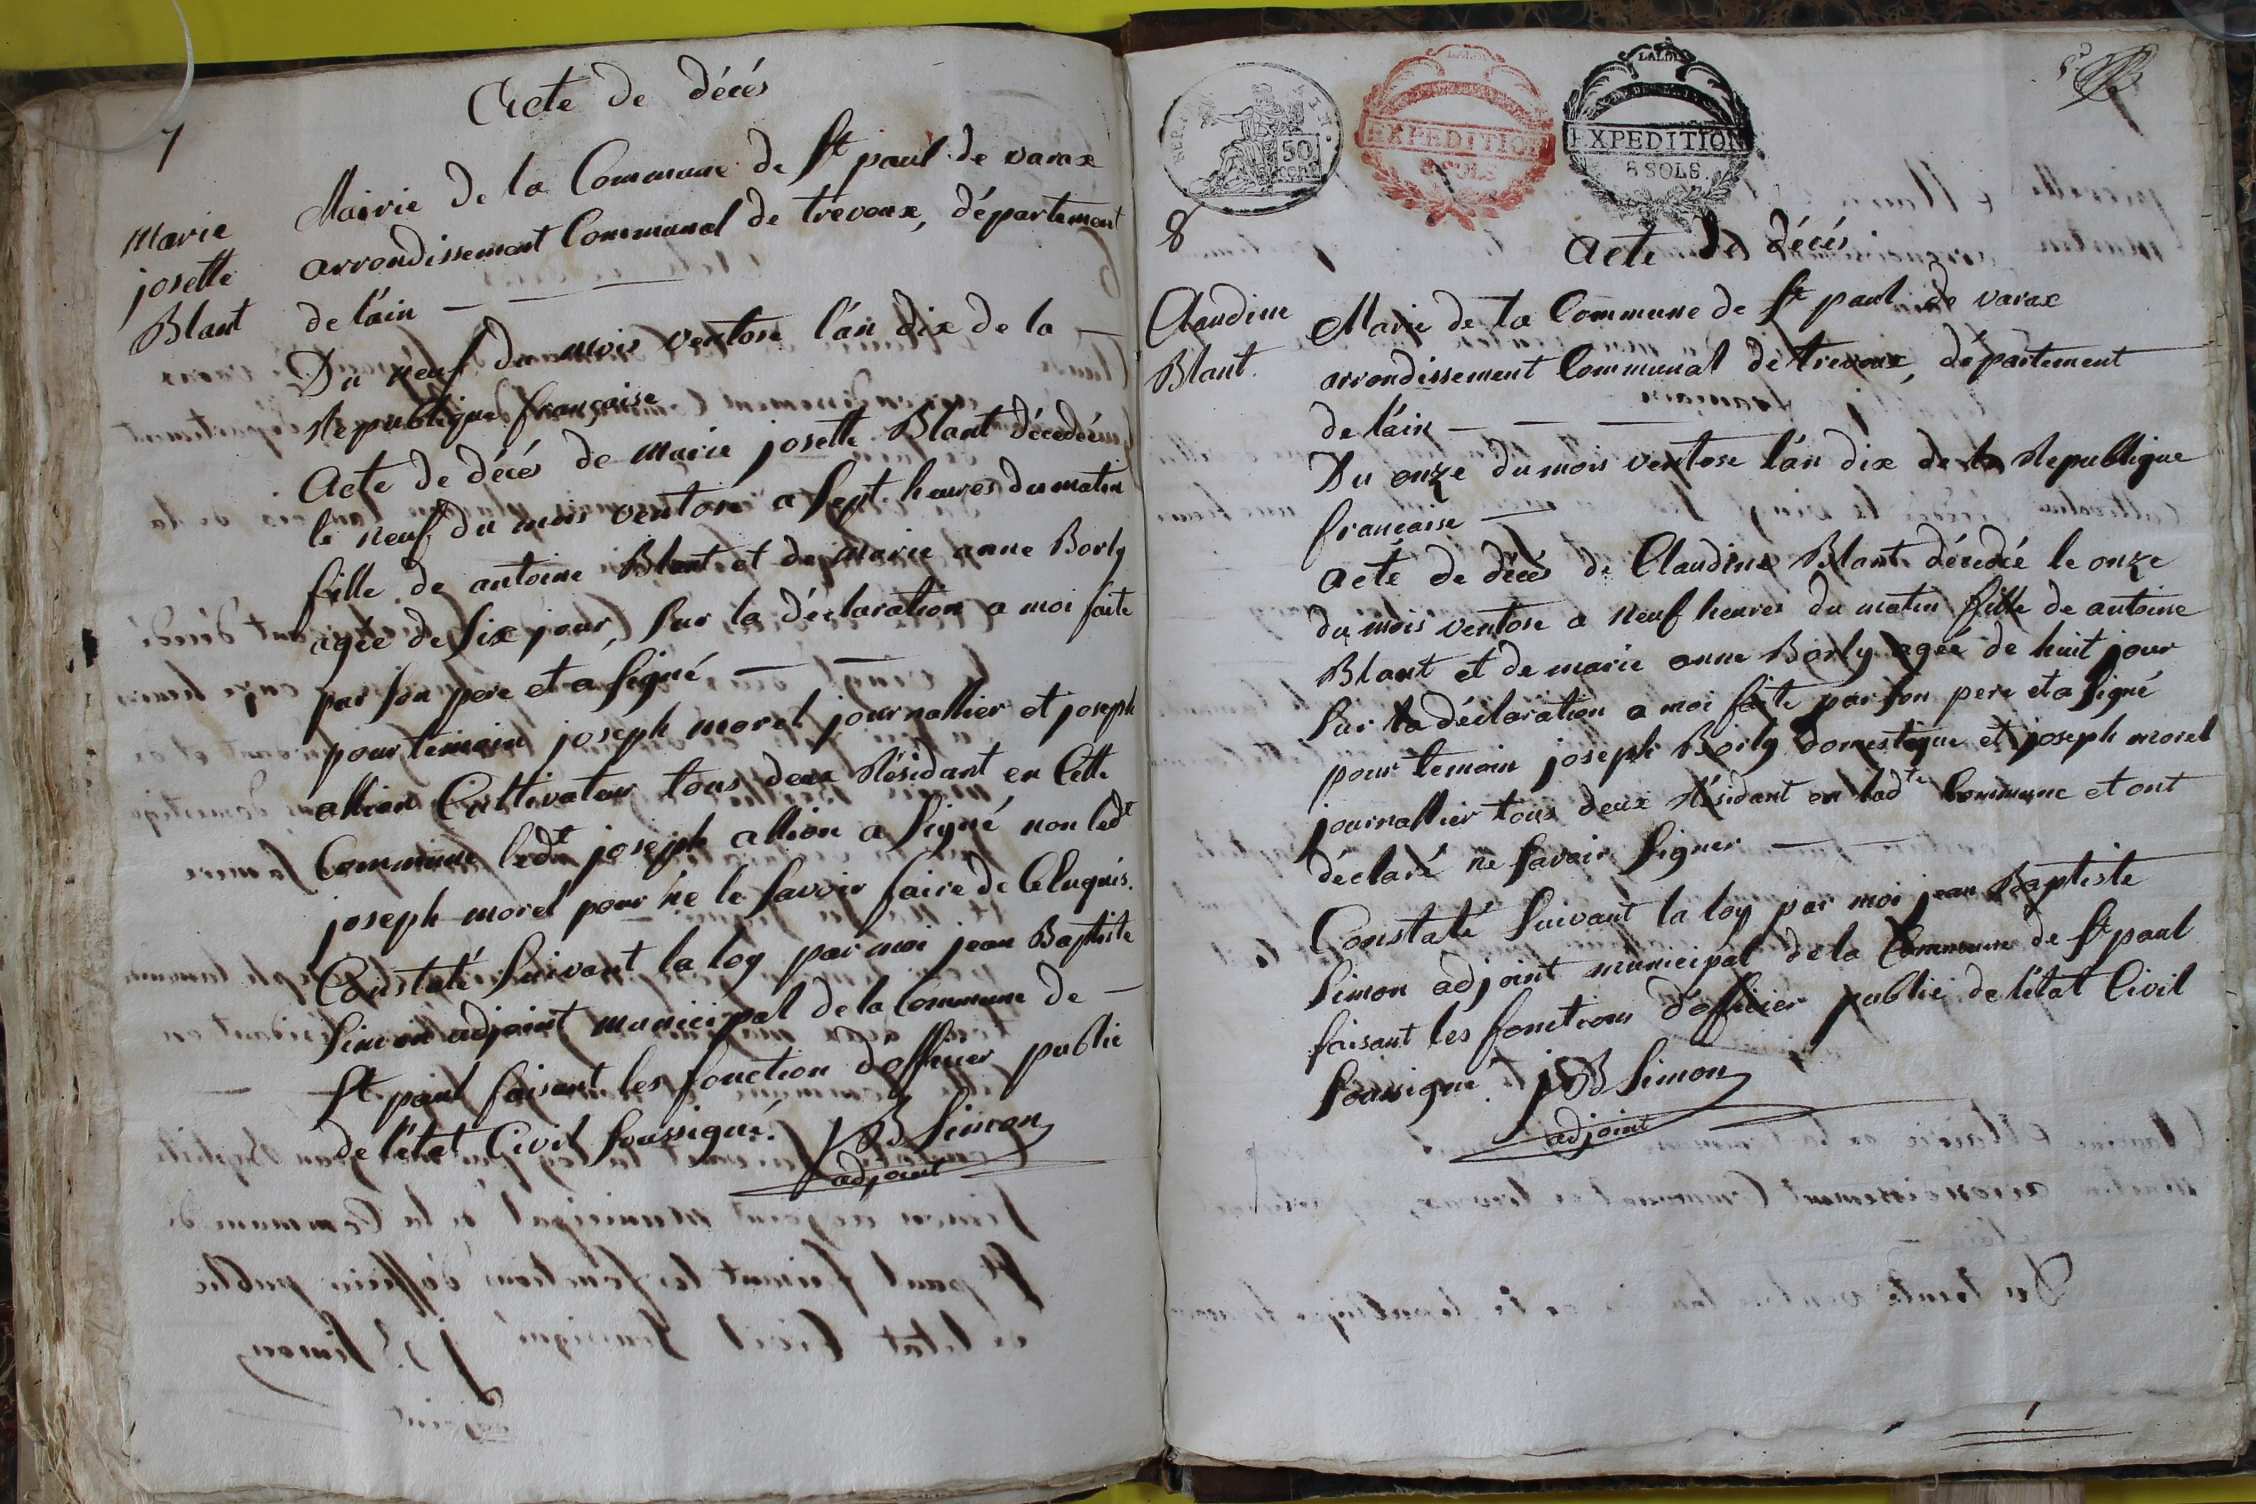 7
Acte de décès
Marie
josette
Blant
Mairie de la Commune de St paul de varax
arrondissement Communal de trevoux, département
de l'ain
Du neuf du mois ventose l'an dix de la
Republique française
Acte de décès de marie josette Blant décedée
le neuf du mois ventose a sept heures du matin
fille de antoine Blant et de marie anne Borly
agée de six jour, sur la déclaration a moi faite
par son pere et a signé
pour temoin joseph morel journallier et joseph
allion Cultivateur tous deux Résidant en Cette
Commune ledt joseph allion a signé non ledt
joseph morel pour ne le savoir faire de Ce Luquis.
Constaté suivant la loy par moi jean Baptiste
Simon adjoint municipal de la Commune de
St paul faisant les fonction d'officier public
de l'état Civil soussigné. JB Simon
adjoint
BO
EXPEDITION
8 SOLS
EXPEDITION
8 SOLS
8
Acte de décès
Claudine
Blant.
Marie de la Commune de St paul de varax
arrondissement Communal de trevoux, département
de l'ain
Du onze du mois ventose l'an dix de la Republique
française
acte de décès de Claudine Blant décedée le onze
du mois ventose a neuf heures du matin fille de antoine
Blant et de marie anne Borly agée de huit jour
sur la déclaration a moi faite par son pere et a signé
pour temoin joseph Borly domestique et joseph morel
journallier tous deux Résidant en ladte Commune et ont
déclaré ne savoir signer
Constaté suivant la loy par moi jean Baptiste
Simon adjoint municipal de la Commune de St paul
faisant les fonctions d'officier public de l'état Civil
soussigné. JB Simon
adjoint